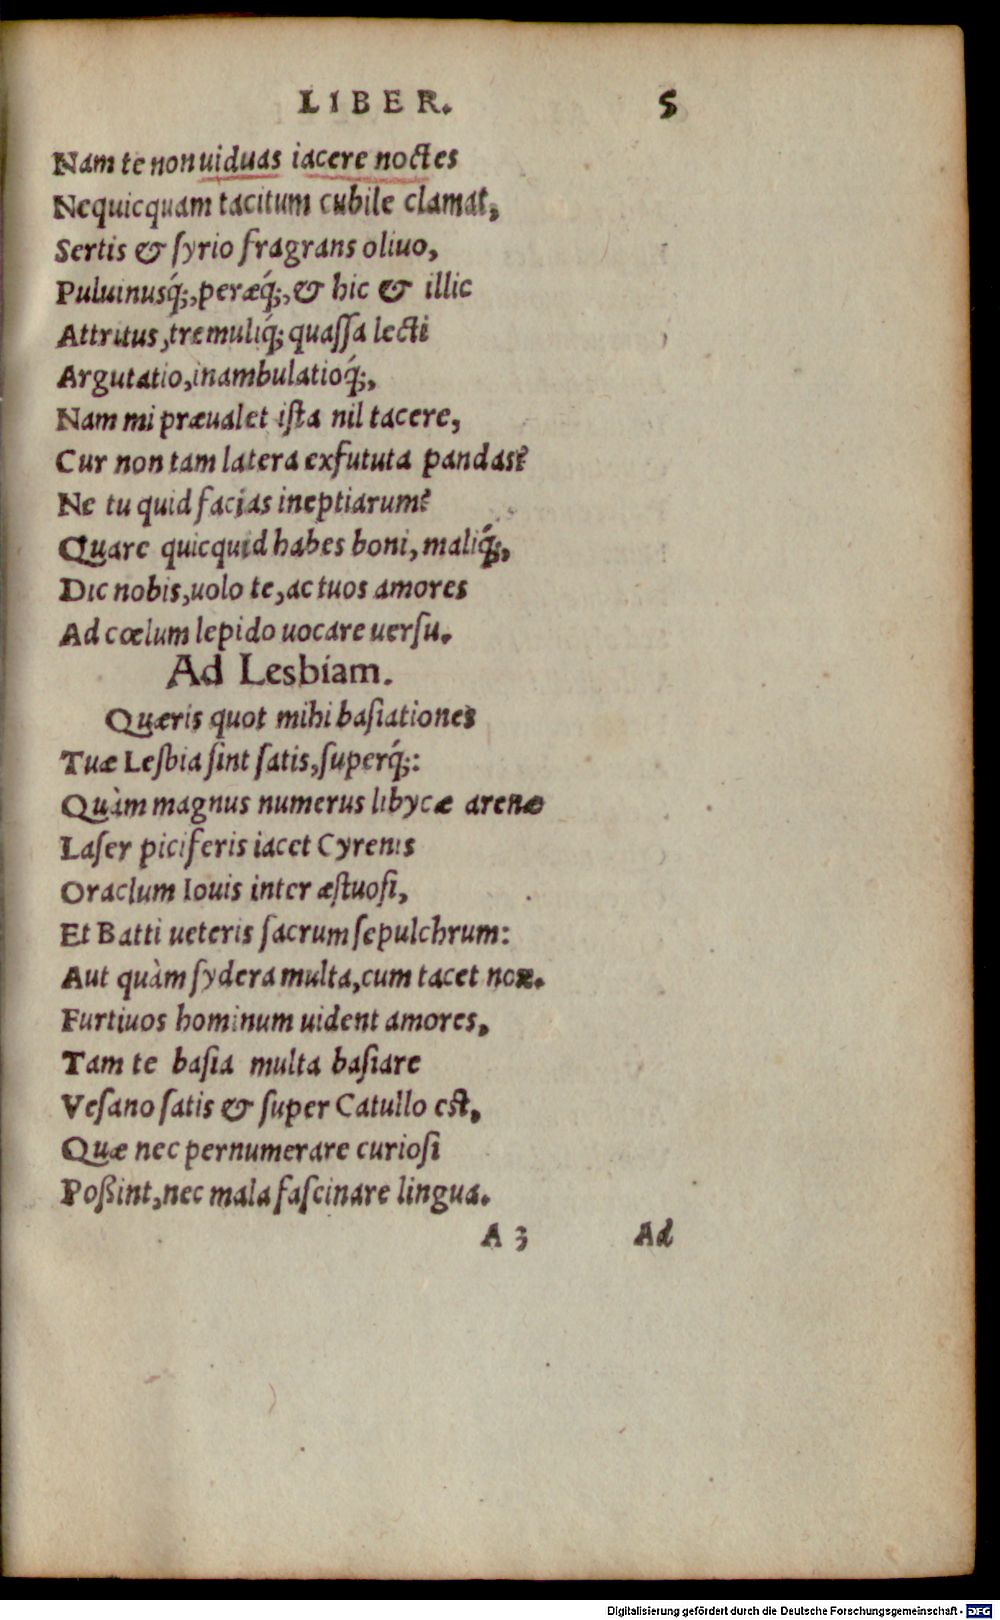 LIBER. 5
Nam te non uiduas iacere noctes
Nequicquam tacitum cubile clamat,
Sertis & ſyrio fragrans oliuo,
Puluinusq́;, peræq́;, & hic & illic
Attritus, tremuliq́; quaſſa lecti
Argutatio, inambulatioq́;,
Nam mi præualet iſta nil tacere,
Cur non tam latera exfututa pandas?
Ne tu quid facias ineptiarum?
Quare quicquid habes boni, maliq́;,
Dic nobis, uolo te, ac tuos amores
Ad cœlum lepido uocare uerſu.
Ad Lesbiam.
Quæris quot mihi baſiationes
Tuæ Lesbia ſint ſatis, ſuperq́;:
Quàm magnus numerus libycæ arenæ
Laſer piciferis iacet Cyrenis
Oraclum Iouis inter æſtuoſi,
Et Batti ueteris ſacrum ſepulchrum:
Aut quàm ſydera multa, cum tacet nox.
Furtiuos hominum uident amores,
Tam te baſia multa baſiare
Veſano ſatis & ſuper Catullo eſt,
Quæ nec pernumerare curioſi
Poßint, nec mala faſcinare lingua.
A 3 Ad
Digitalisierung gefördert durch die Deutsche Forschungsgemeinschaft - DFG